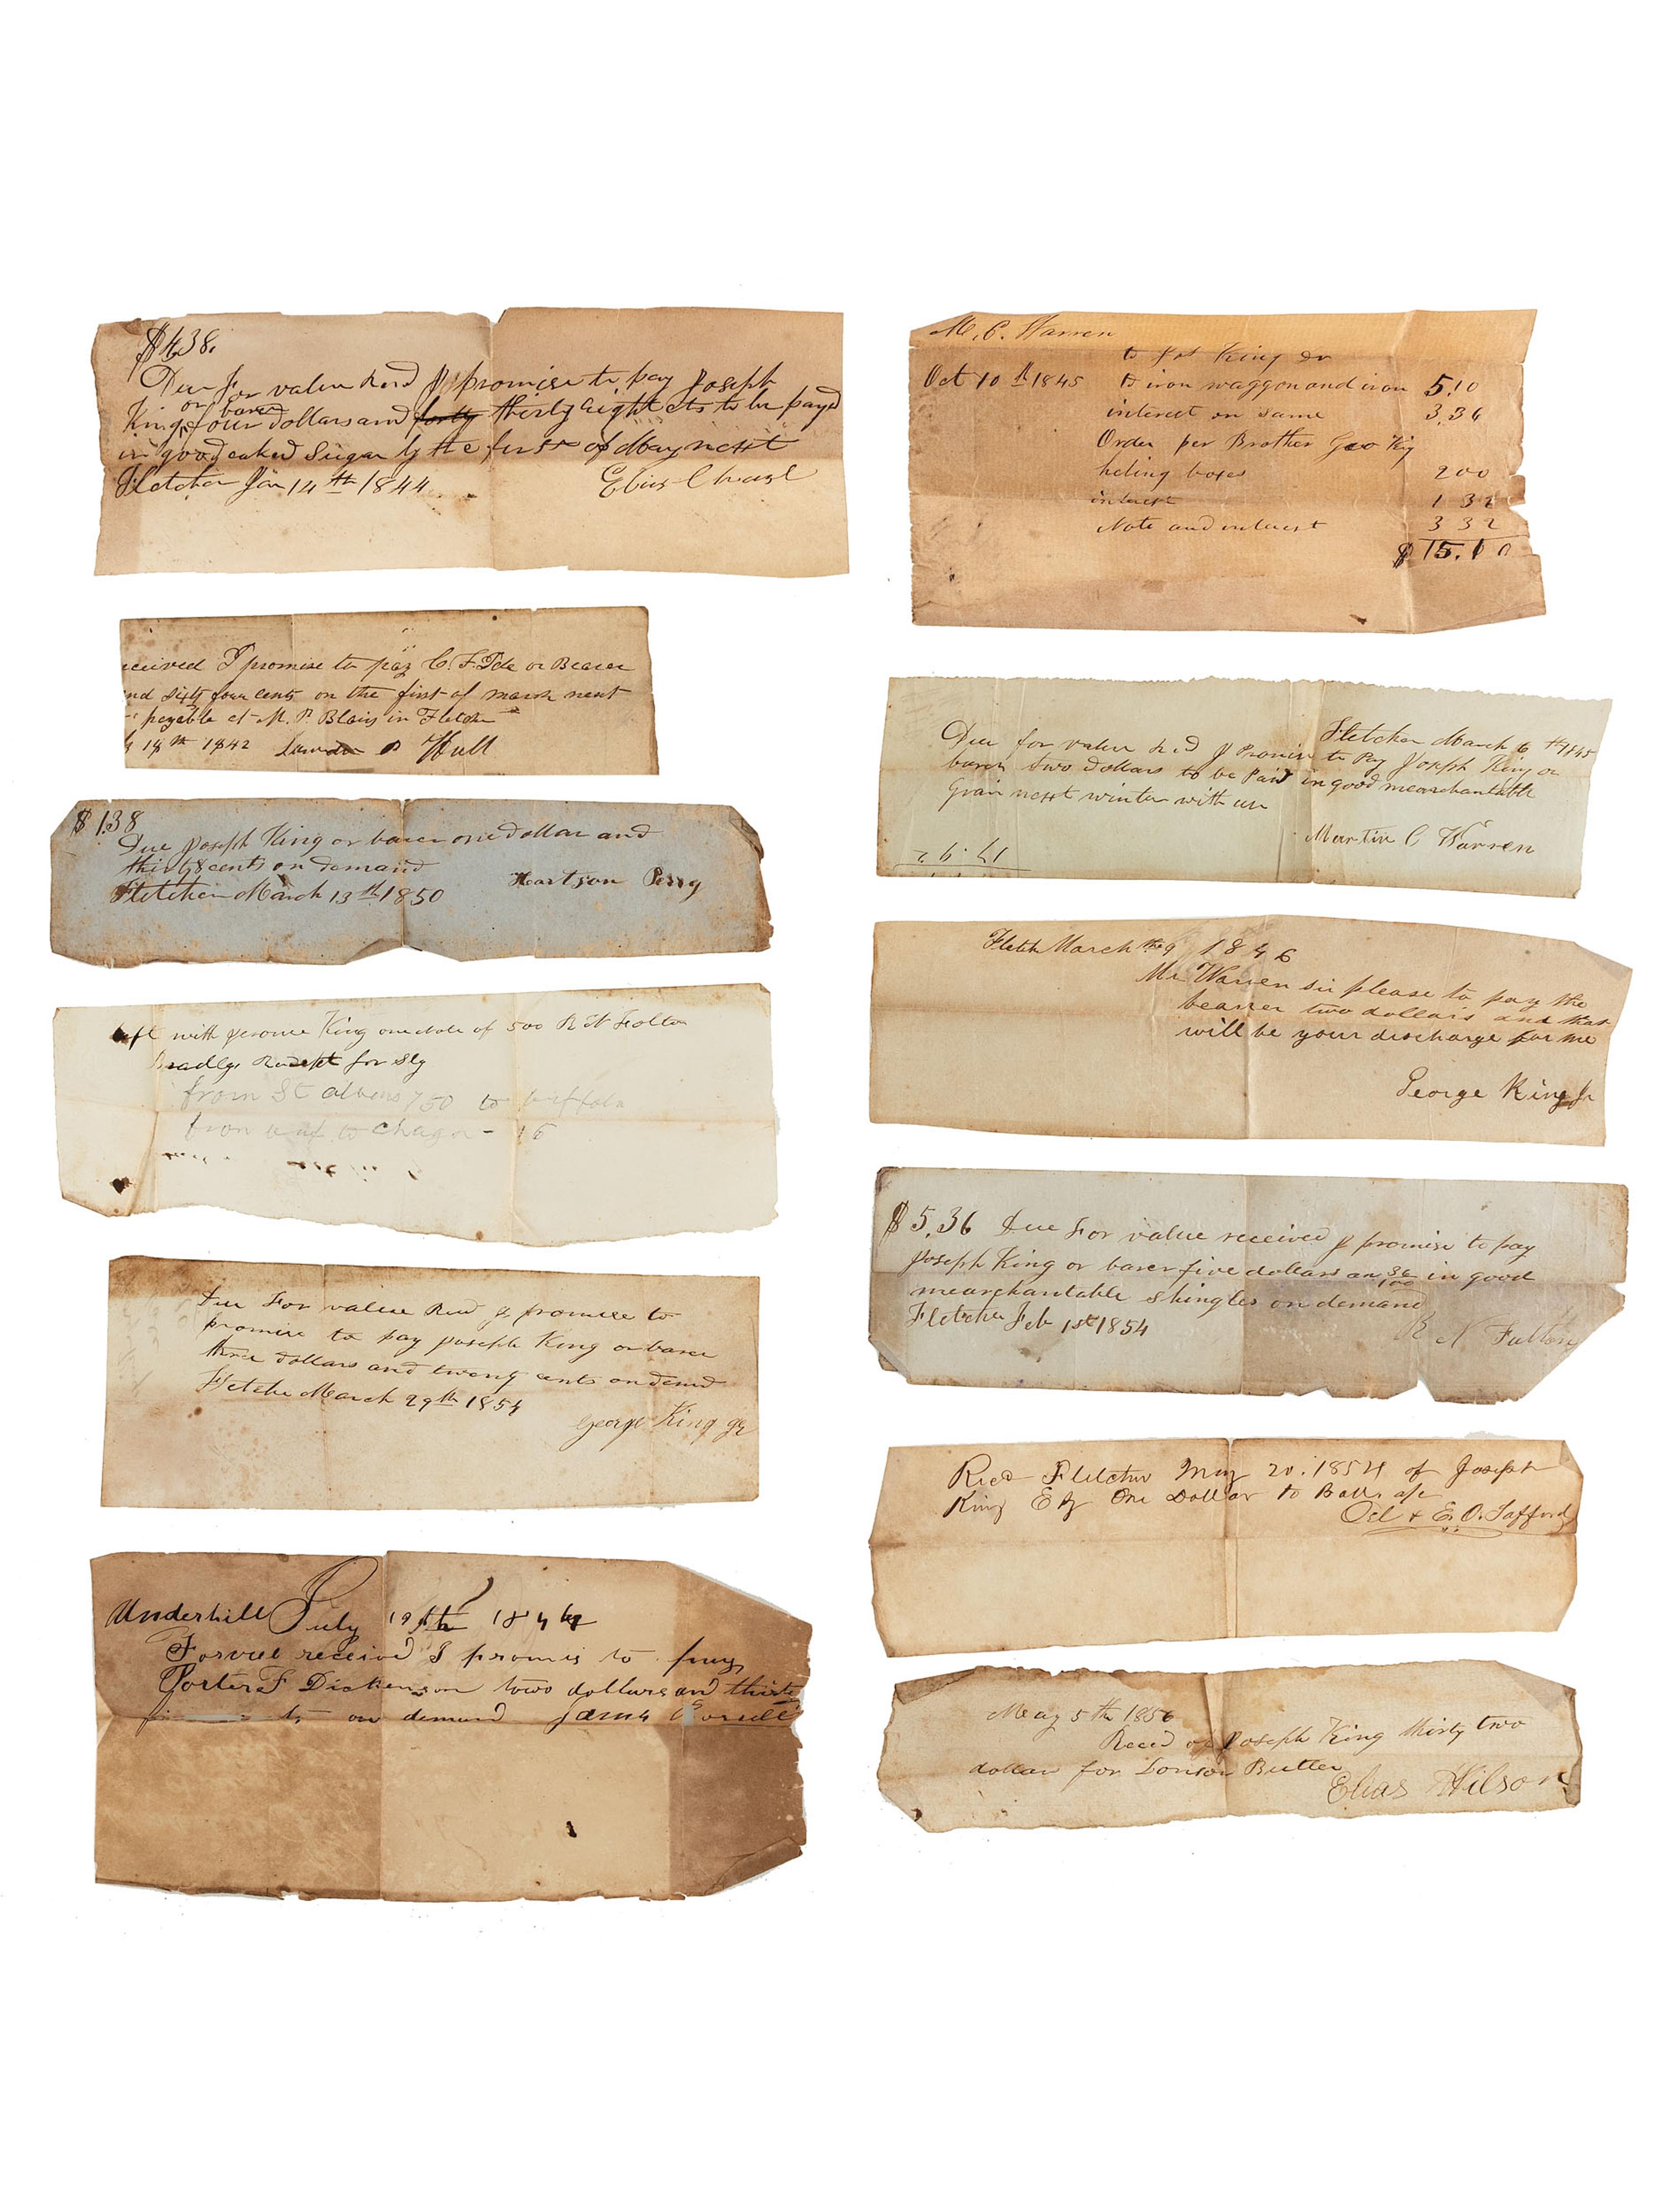 $4.38.
Due for value Recd I promise to pay Joseph
or barer
King four dollars and forty thirty eight cts to be payd
in good caked Sugar by the first of May next
Fletcher Jan 14th 1844
Elias Chase
eceived I promise to pay C. F. Ide or Bearer
nd sixty four cents on the first of march next
payable at M. P. Blairs in Fletcher
18th 1842 Hull
$1.38
Due Joseph King or barer one dollar and
thirty 8 cents on demand
Fletcher March 13th 1850
Heartson Perry
left with Jerome King one note of 500 R N Folton
Bradlys Recept for Sly
from St albans 750 to buffalo
from buf to Chago - 15
Due For value Recd I promise to
promise to pay Joseph King or barer
three dollars and twenty cents on demd
Fletche March 29th 1854
George King Jr
Underhill July 19th 1844
For vue received I promis to pay
Porter F Dickenson towo dollars and thirty
on demand James
M. C. Warren
to Jos King Dr
Oct 10th 1845 to iron waggon and iron 5.10
interest on same 3.36
Order per Brother Geo King
heling boxes 200
interest 1 32
Note and interest 3 32
$ 15.10
Fletcher March 6th 1845
Due for value Recd I Promise to Pay Joseph King or
barer two dollars to be Paid in good mearchantable
Grain next winter with use
Martin C Warren
Fletch March the 9 1846
Mr Warren sir please to pay the
bearer two dollars and that
will be your discharge for me
George King Jr
$5.36 Due For value received I promise to pay
Joseph King or barer five dollars an 36/100 in good
mearchantable Shingles on demand
Fletcher Feb 1st 1854
R N Fulton
Recd Fletcher May 20. 1854 of Joseph
King Esq One Dollar to Balls a/c
& E. O. Safford
May 5th 1856
Receed of Joseph King thirty two
dollar for Lorison Butler
Elias Wilson